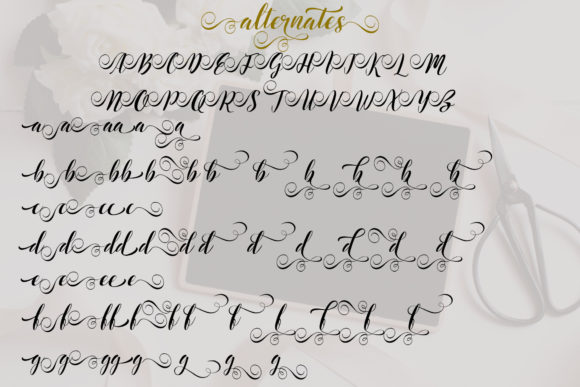 alternates
A B C D E F G H I J K L M
N O P Q R S T U V W X Y Z
a a a a a a
b b b b b b b b b b b b
c c c c c
d d d d d d d d d d d d
e e e e e
f f f f f f f f f f f f
g g g g g g g g